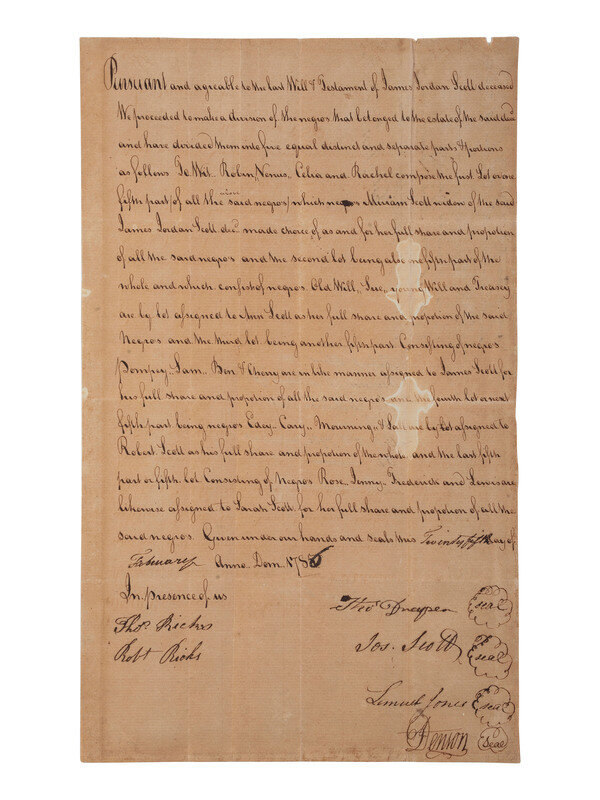 Pursuant and agreeable to the last Will & Testament of James Jordan Scott deceased
We proceeded to make a division of the negros that belonged to the estate of the said decd
and have devided them into five equal distinct and separate parts & potions
as follows To Wit.. Robin, Venus, Celia and Rachel compose the first Lot or one
fifth part of all the above said negros / which negros Miriam Scott widow of the said
James Jordan Scott decd made choice of as and for her full share and propotion
of all the said negros and the second lot being also one fifth part of the
whole and which consist of negros Old Will, Sue, young Will and Treasey
are by lot assigned to Ann Scott as her full share and propotion of the said
Negros and the third lot being another fifth part Consisting of negros
Pompey Sam.. Ben & are in like manner assigned to James Scott for
his full share and propotion of all the said negros and the fourth lot or next
fifth part being negros Edey.. Cary.. Mourning.. & are by lot assigned to
Robert Scott as his full share and propotion of the whole and the last fifth
part or fifth lot Consisting of Negros Rose, Jenny, Frederick and Lewis are
likewise assigned to Sarah Scott for her full share and propotion of all the
said negros. Given under our hands and seals this Twenty fifth day of
February Anno Dom. 1786
In presence of us
Thos. Ricks
Robt Ricks
Thos
seal
Jos. Scott
seal
Lemuel Jones
seal
Denson
seal